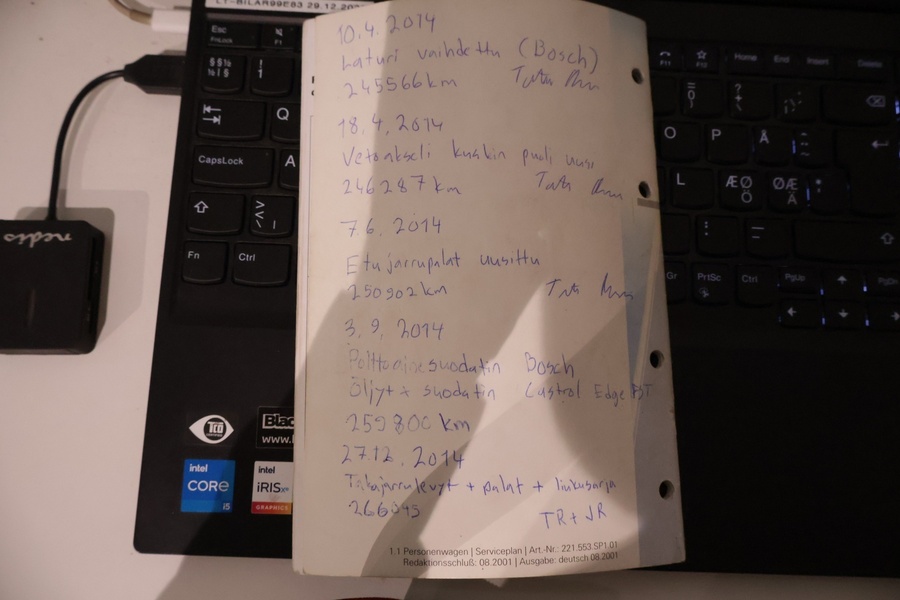 10.4.2014
Laturi vaihdettu (Bosch)
245566km
18.4.2014
Vetoakseli kuskin puoli uusi
246287km
7.6.2014
Etujarrupalat uusittu
250902km
3.9.2014
Polttoainesuodatin Bosch
Öljyt + suodatin Castrol Edge
259800 km
27.12.2014
Takajarrulevyt + palat + liukusarja
TR + JR
1.1 Personenwagen | Serviceplan | Art.-Nr.: 221.553.SP1.01
Redaktionsschluß: 08.2001 | Ausgabe: deutsch 08.2001
Esc
FnLock
F1
Q
CapsLock
A
Fn
Ctrl
F11
F12
Home
End
Insert
Delete
O
P
Å
L
ÆØ
Ö
ØÆ
Ä
Gr
PrtSc
Ctrl
PgUp
PgDn
nedis
TCO
Blac
www.
intel
CORE
i5
intel
iRISxe
GRAPHICS